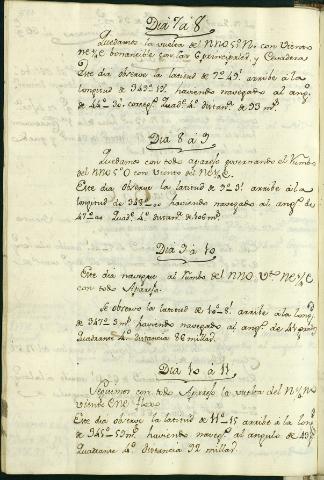 Dia 7 á 8
Quedamos la vuelta del NNO 5º No con Viento
NE¼E bonancible con las Eprincipales, y Cuadera
Este dia observe la latitud de 7º 49' arribe á la
longitud de 349º 19' haviendo navegado al angº
de 44º 30' corresp. Quadte 4º distanª de 93 mllª
Dia 8 á 9
Quedamos con todo aparejo governando el Rumbo
del NNO 5º O con viento del NE¼E
Este dia observe la latitud de 9º 3' arribe á la
longitud de 348º haviendo navegado al angº de
47º Quadte 4º distanª de 106 mllª
Dia 9 á 10
Este dia navegue al Rumbo del NNO Vto NE¼E
con todo Aparejo
Se observo la latitud de 10º 8' arribe á la longd
de 347º 3 mº haviendo navegado al angº de 41 grads
Quadrante 4º distancia 86 millas
Dia 10 á 11
Seguimos con todo Aparejo la vuelta del N¼N
viento ENE floxo
Este dia observe la latitud de 11º 15 arribe á la longd
de 345º 59 mº haviendo navegº al angulo de 43º
Quadrante 4º distancia 92 millas